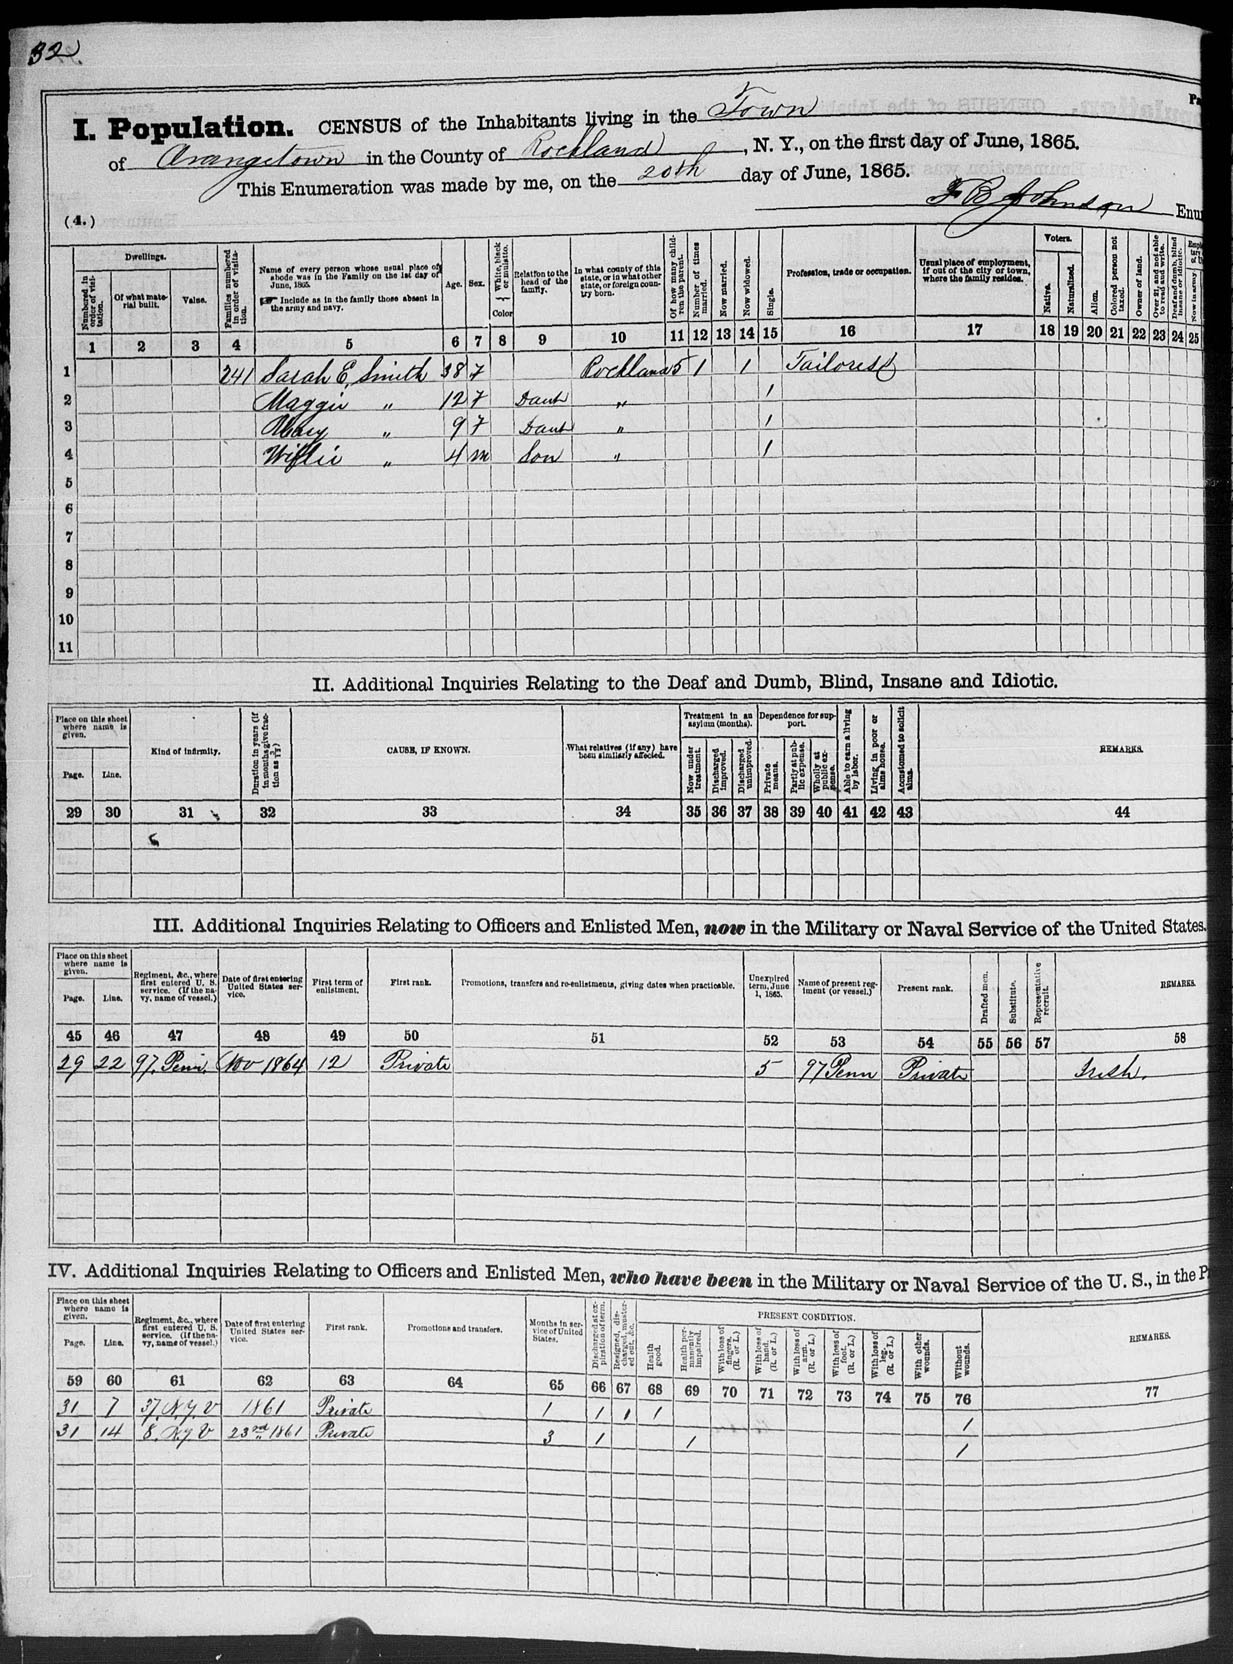 32
Pa
I. Population. CENSUS of the Inhabitants living in the Town
of Orangetown in the County of Rockland, N. Y., on the first day of June, 1865.
This Enumeration was made by me, on the 20th day of June, 1865.
(4.) B Johnson Enu
Dwellings.
Numbered in order of visitation.
Of what material built.
Value.
Families numbered in order of visitation.
Name of every person whose usual place of abode was in the Family on the 1st day of June, 1865.
☞ Include as in the family those absent in the army and navy.
Age.
Sex.
White, black or mulatto.
Color
Relation to the head of the family.
In what county of this state, or in what other state, or foreign country born.
Of how many children the parent.
Number of times married.
Now married.
Now widowed.
Single.
Profession, trade or occupation.
Usual place of employment, if out of the city or town, where the family resides.
Voters.
Native.
Naturalized.
Alien.
Colored person not taxed.
Owner of land.
Over 21, and not able to read and write.
Deaf and dumb, blind insane or idiotic.
Now in army
1 2 3 4 5 6 7 8 9 10 11 12 13 14 15 16 17 18 19 20 21 22 23 24 25
1 241 Sarah E. Smith 38 F Rockland 5 1 1 Tailoress
2 Maggie " 12 F Daut " 1
3 Mary " 9 F Daut " 1
4 Willie " 4 M Son " 1
5
6
7
8
9
10
11
II. Additional Inquiries Relating to the Deaf and Dumb, Blind, Insane and Idiotic.
Place on this sheet where name is given.
Page.
Line.
Kind of infirmity.
Duration in years (if in months give fraction as 3/12)
CAUSE, IF KNOWN.
What relatives (if any) have been similarly affected.
Treatment in an asylum (months).
Now under treatment.
Discharged improved.
Discharged unimproved.
Dependence for support.
Private means.
Partly at public expense.
Wholly at public expense.
Able to earn a living by labor.
Living in poor or alms house.
Accustomed to solicit alms.
REMARKS.
29 30 31 32 33 34 35 36 37 38 39 40 41 42 43 44
III. Additional Inquiries Relating to Officers and Enlisted Men, now in the Military or Naval Service of the United States.
Place on this sheet where name is given.
Page.
Line.
Regiment, &c., where first entered U. S. service. (If the navy, name of vessel.)
Date of first entering United States service.
First term of enlistment.
First rank.
Promotions, transfers and re-enlistments, giving dates when practicable.
Unexpired term, June 1, 1865.
Name of present regiment (or vessel.)
Present rank.
Drafted men.
Substitute.
Representative recruit.
REMARKS.
45 46 47 48 49 50 51 52 53 54 55 56 57 58
29 22 97. Penn. Nov 1864 12 Private 5 97 Penn Private Irish.
IV. Additional Inquiries Relating to Officers and Enlisted Men, who have been in the Military or Naval Service of the U. S., in the P
Place on this sheet where name is given.
Page.
Line.
Regiment, &c., where first entered U. S. service. (If the navy, name of vessel.)
Date of first entering United States service.
First rank.
Promotions and transfers.
Months in service of United States.
Discharged at expiration of term.
Resigned, discharged, mustered out, &c.
PRESENT CONDITION.
Health good.
Health permanently impaired.
With loss of fingers. (R. or L.)
With loss of hand. (R. or L.)
With loss of arm. (R. or L.)
With loss of foot. (R. or L.)
With loss of leg. (R. or L.)
With other wounds.
Without wounds.
REMARKS.
59 60 61 62 63 64 65 66 67 68 69 70 71 72 73 74 75 76 77
31 7 37, N.Y. V 1861 Private 1 1 1 1 1
31 14 8, N.Y. V 23rd 1861 Private 3 1 1 1